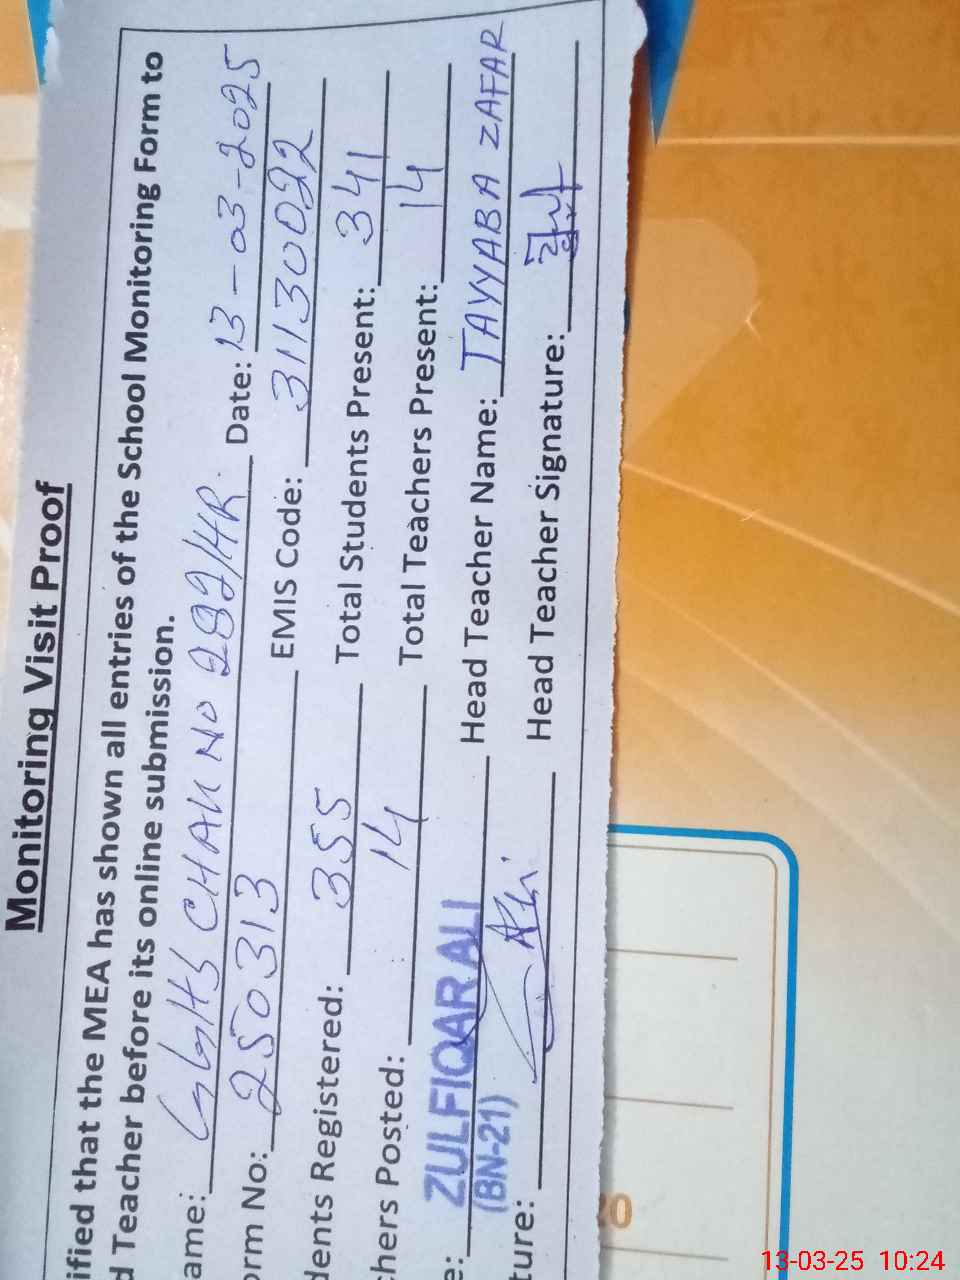 Monitoring Visit Proof
ified that the MEA has shown all entries of the School Monitoring Form to
d Teacher before its online submission.
ame: GGHS CHAK NO 282/HR Date: 13-03-2025
orm No: 250313 EMIS Code: 31130022
dents Registered: 355 Total Students Present: 341
chers Posted: 14 Total Teachers Present: 14
e: ZULFIQAR ALI Head Teacher Name: TAYYABA ZAFAR
(BN-21)
ture: Head Teacher Signature:
20
13-03-25 10:24